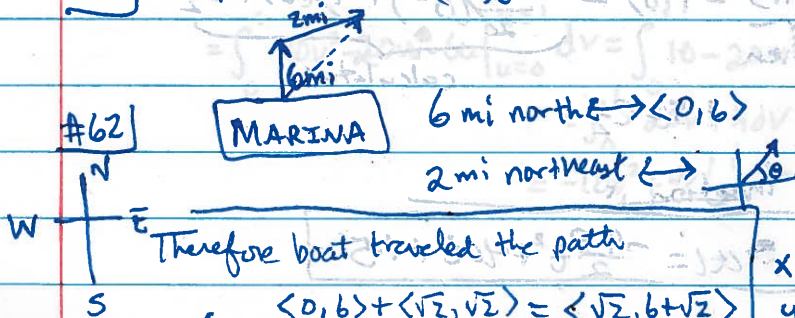 2mi
6mi
#62
MARINA
6 mi north ↔ <0,6>
2 mi northeast ↔ θ
N
W E
S
Therefore boat traveled the path
x
<0,6>+<√2,√2> = <√2,6+√2>